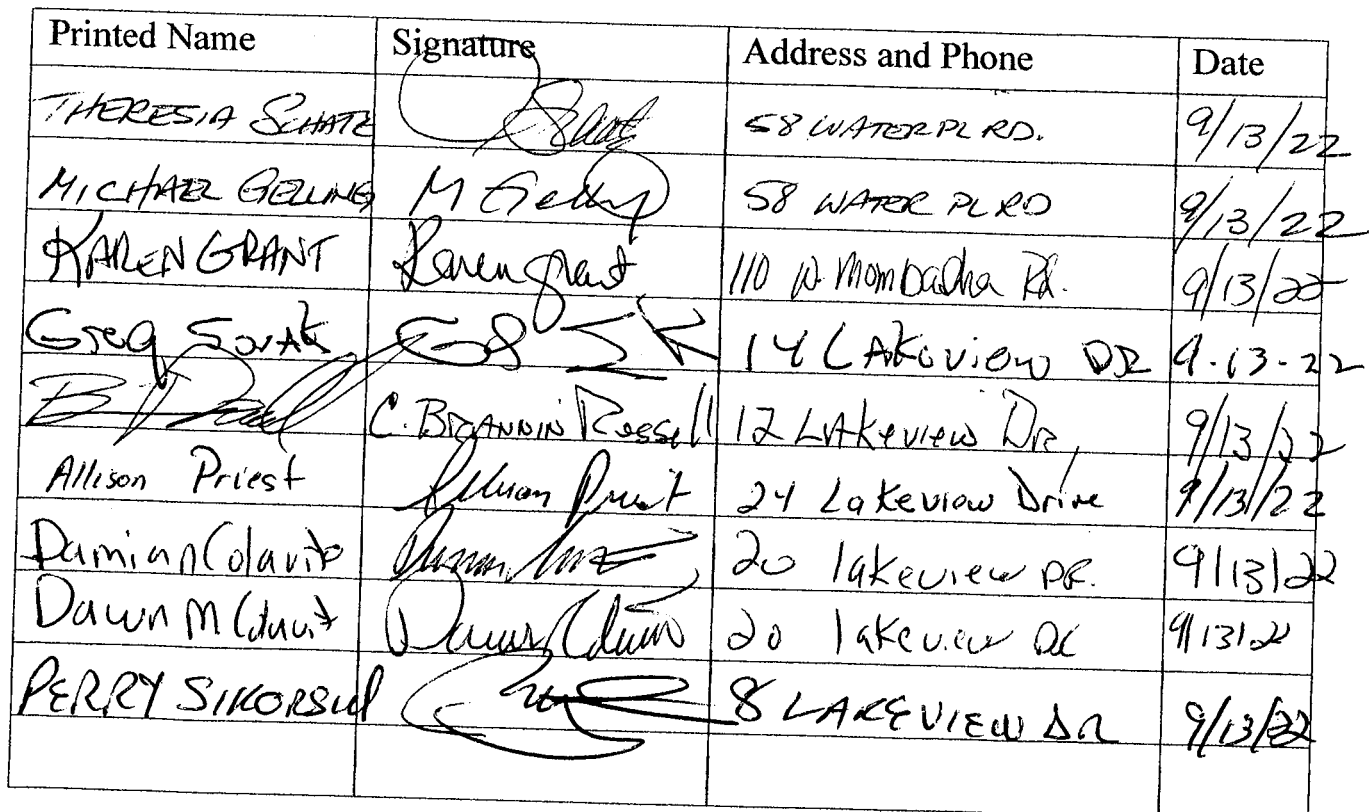 Printed Name Signature Address and Phone Date
THERESIA SCHATZ 58 WATER PL RD. 9/13/22
MICHAEL GELLING M Gelling 58 WATER PL RD 9/13/22
KAREN GRANT Karen Grant 110 W. Mombasha Rd. 9/13/22
Greg Sorak 14 LAKeview DR 9-13-22
C. BRANNIN Russell 12 LAKeview Dr, 9/13/22
Allison Priest Allison Priest 24 Lakeview Drive 9/13/22
Damian Colavito 20 lakeview DR. 9/13/22
Dawn M Colavit Dawn Colavito 20 lakeview DR 9/13/22
PERRY SIKORSKI 8 LAKEVIEW DR 9/13/22